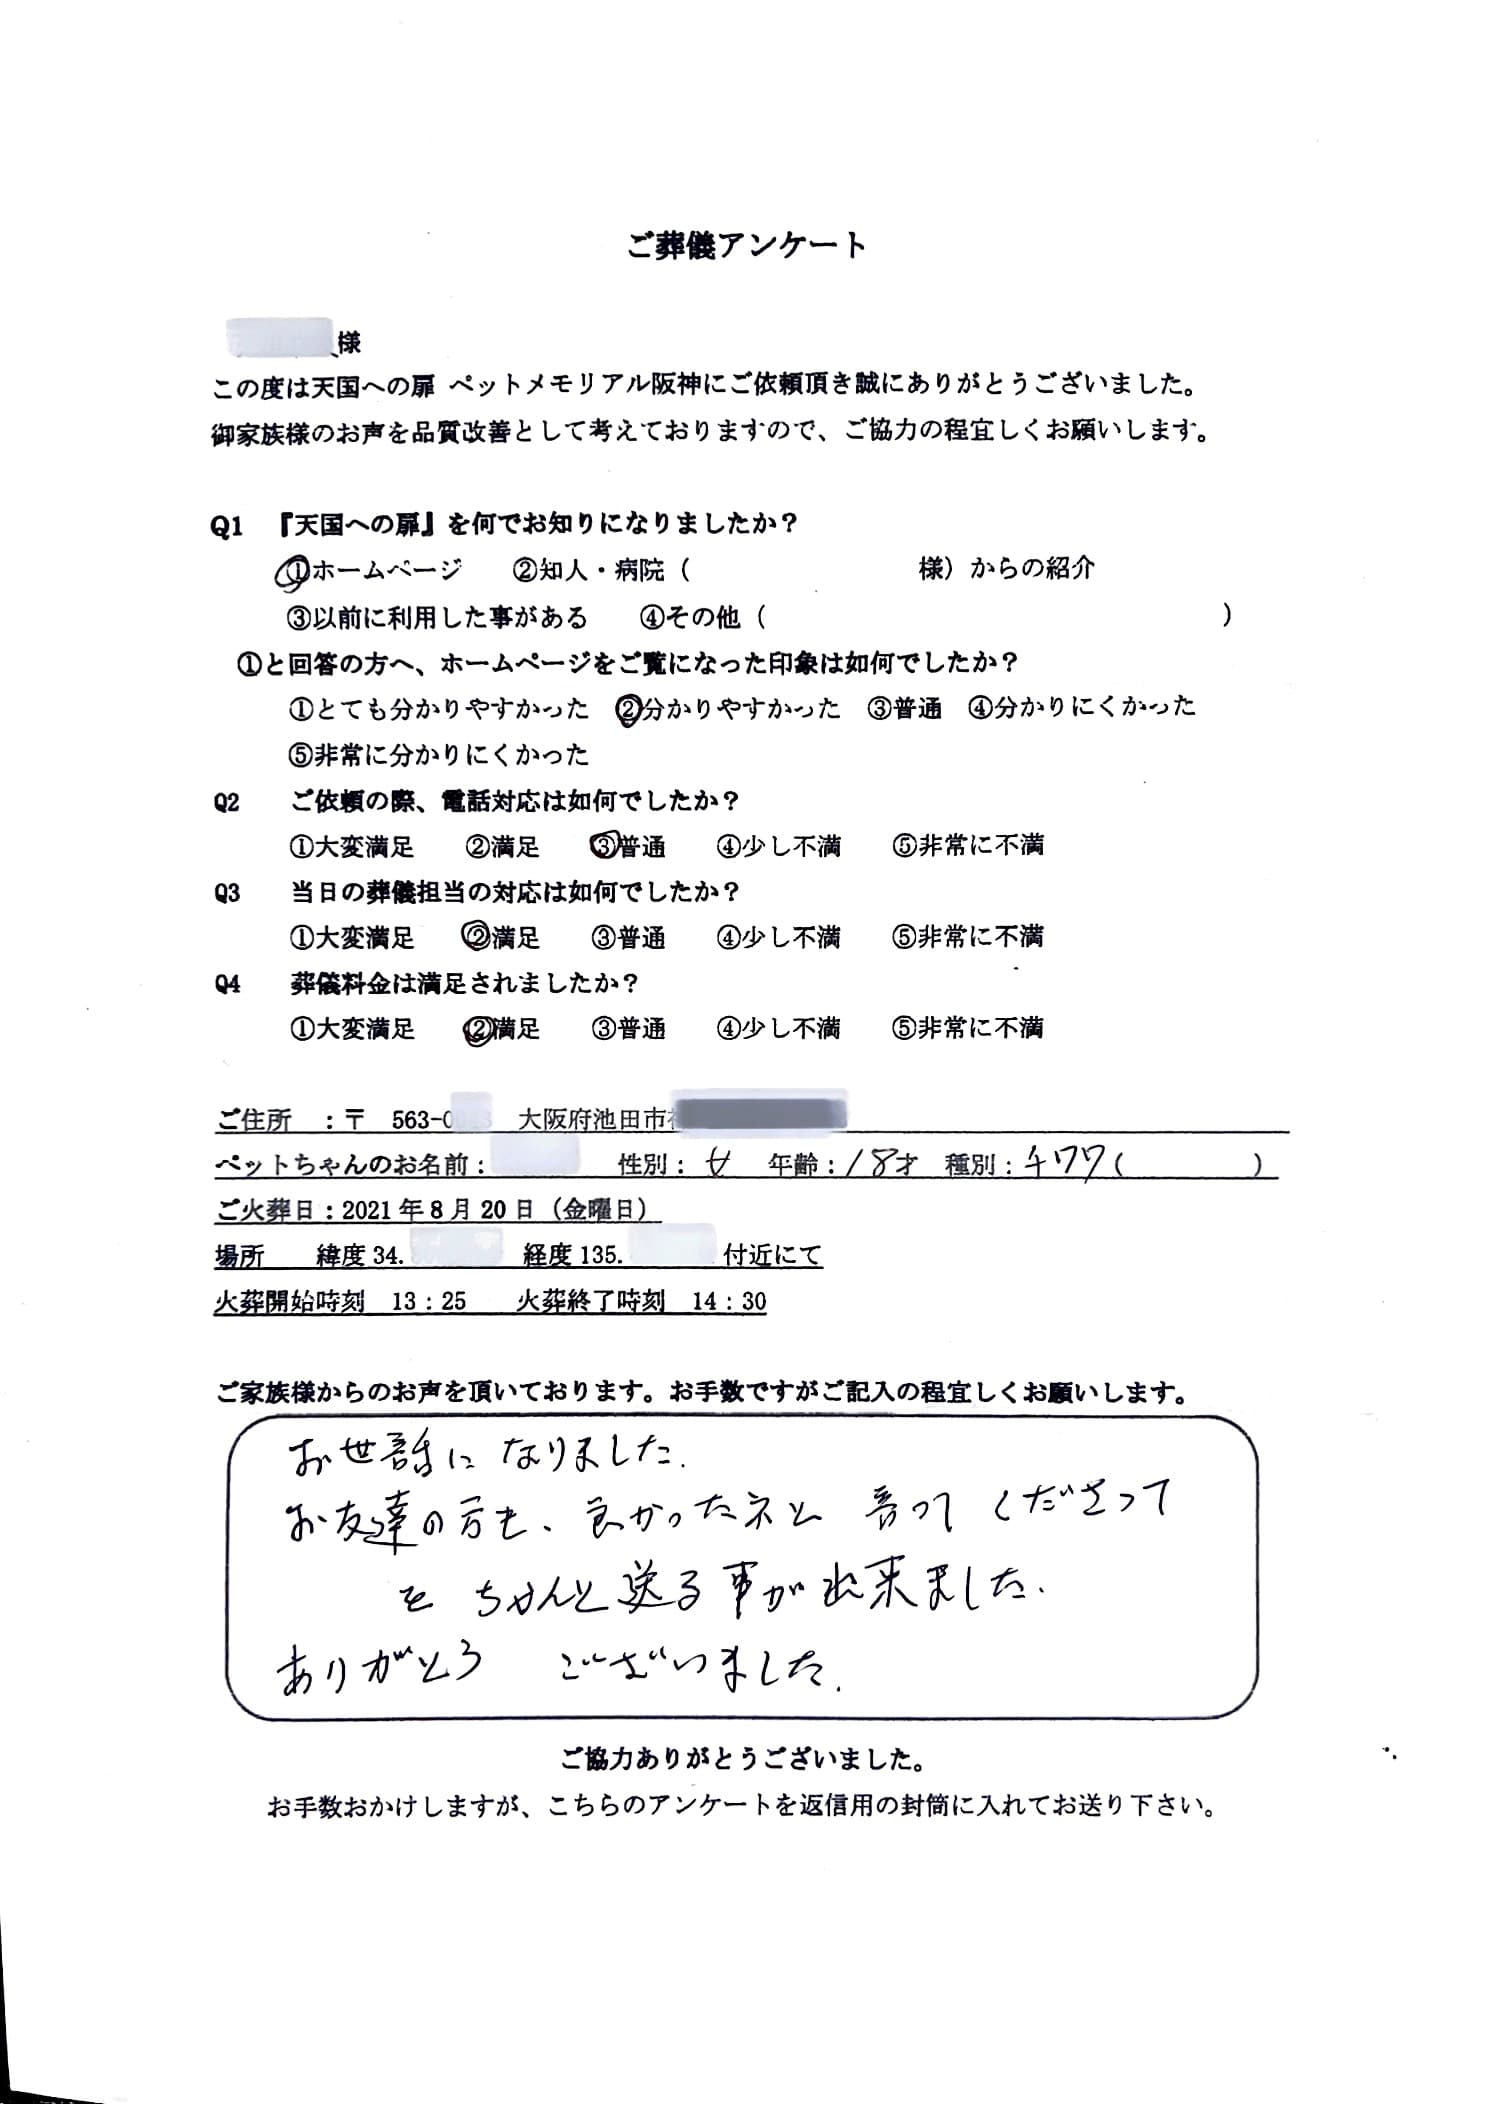 ご葬儀アンケート
様
この度は天国への扉 ペットメモリアル阪神にご依頼頂き誠にありがとうございました。
御家族様のお声を品質改善として考えておりますので、ご協力の程宜しくお願いします。
Q1 『天国への扉』を何でお知りになりましたか？
①ホームページ ②知人・病院（ 様）からの紹介
③以前に利用した事がある ④その他（ ）
①と回答の方へ、ホームページをご覧になった印象は如何でしたか？
①とても分かりやすかった ②分かりやすかった ③普通 ④分かりにくかった
⑤非常に分かりにくかった
Q2 ご依頼の際、電話対応は如何でしたか？
①大変満足 ②満足 ③普通 ④少し不満 ⑤非常に不満
Q3 当日の葬儀担当の対応は如何でしたか？
①大変満足 ②満足 ③普通 ④少し不満 ⑤非常に不満
Q4 葬儀料金は満足されましたか？
①大変満足 ②満足 ③普通 ④少し不満 ⑤非常に不満
ご住所 ：〒 563-0 大阪府池田市
ペットちゃんのお名前： 性別：女 年齢：18才 種別：チワワ（ ）
ご火葬日：2021年8月20日（金曜日）
場所 緯度34. 経度135. 付近にて
火葬開始時刻 13：25 火葬終了時刻 14：30
ご家族様からのお声を頂いております。お手数ですがご記入の程宜しくお願いします。
お世話になりました.
お友達の方も、良かったネと 言って くださって
を ちゃんと送る事が出来ました.
ありがとう ございました.
ご協力ありがとうございました。
お手数おかけしますが、こちらのアンケートを返信用の封筒に入れてお送り下さい。